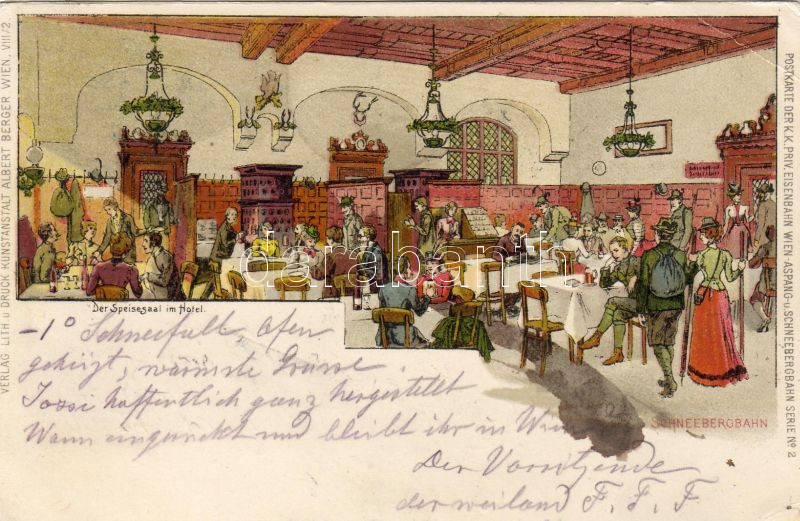 VERLAG LITH u DRUCK KUNSTANSTALT ALBERT BERGER WIEN. VIII/2
POSTKARTE DER K.K. PRIV. EISENBAHN WIEN-ASPANG-U SCHNEEBERGBAHN SERIE No 2
darabanth
Der Speisesaal im Hotel.
SCHNEEBERGBAHN
-1° Schneefall, Ofen
geheizt, wärmste Grüsse
hoffentlich ganz hergestellt
Wann eingerückt und bleibt ihr in Wien
Der Vorsitzende
der weiland F. F. F